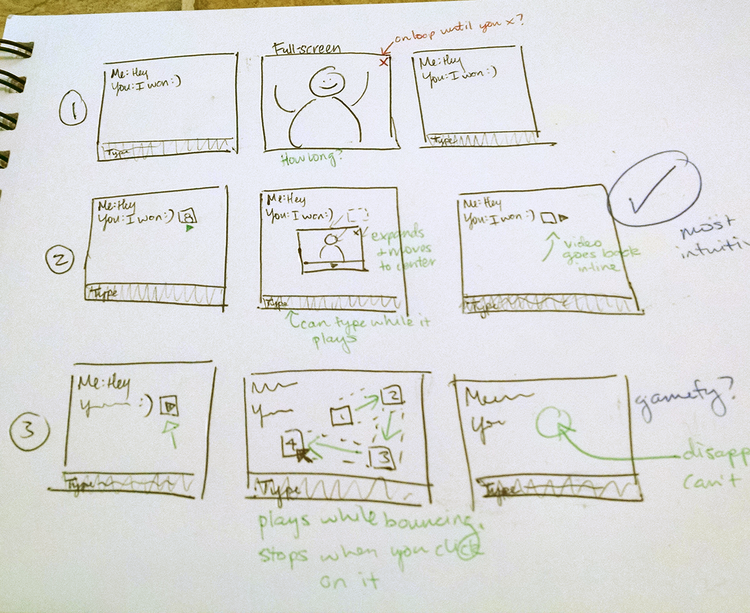 on loop until you x?
Full-screen
x
1
Me: Hey
You: I won :)
Type
How long?
Me: Hey
You: I won :)
Type
2
Me: Hey
You: I won :)
Type
Me: Hey
You: I won :)
x
expands
+ moves
to center
Type
can type while it
plays
Me: Hey
You: I won :)
video
goes back
in-line
Type
most
intuitiv
3
Me: Hey
:)
Type
1
2
3
4
Type
plays while bouncing.
stops when you click
on it
Me
You
Type
gamefy?
disapp
can't